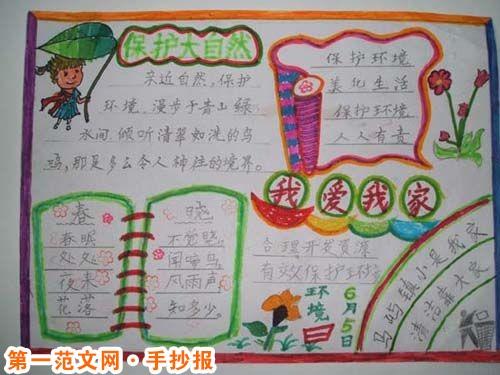 保护大自然
亲近自然,保护
环境。漫步于青山绿
水间,倾听清翠如洗的鸟
鸣,那是多么令人神往的境界。
保护环境
美化生活
保护环境
人人有责
我爱我家
春 晓
春眠 不觉晓,
处处 闻啼鸟
夜来 风雨声
花落 知多少。
合理开发资源
有效保护环境
6月5日
环境日
马屿镇小是我家
清洁靠大家
第一范文网·手抄报